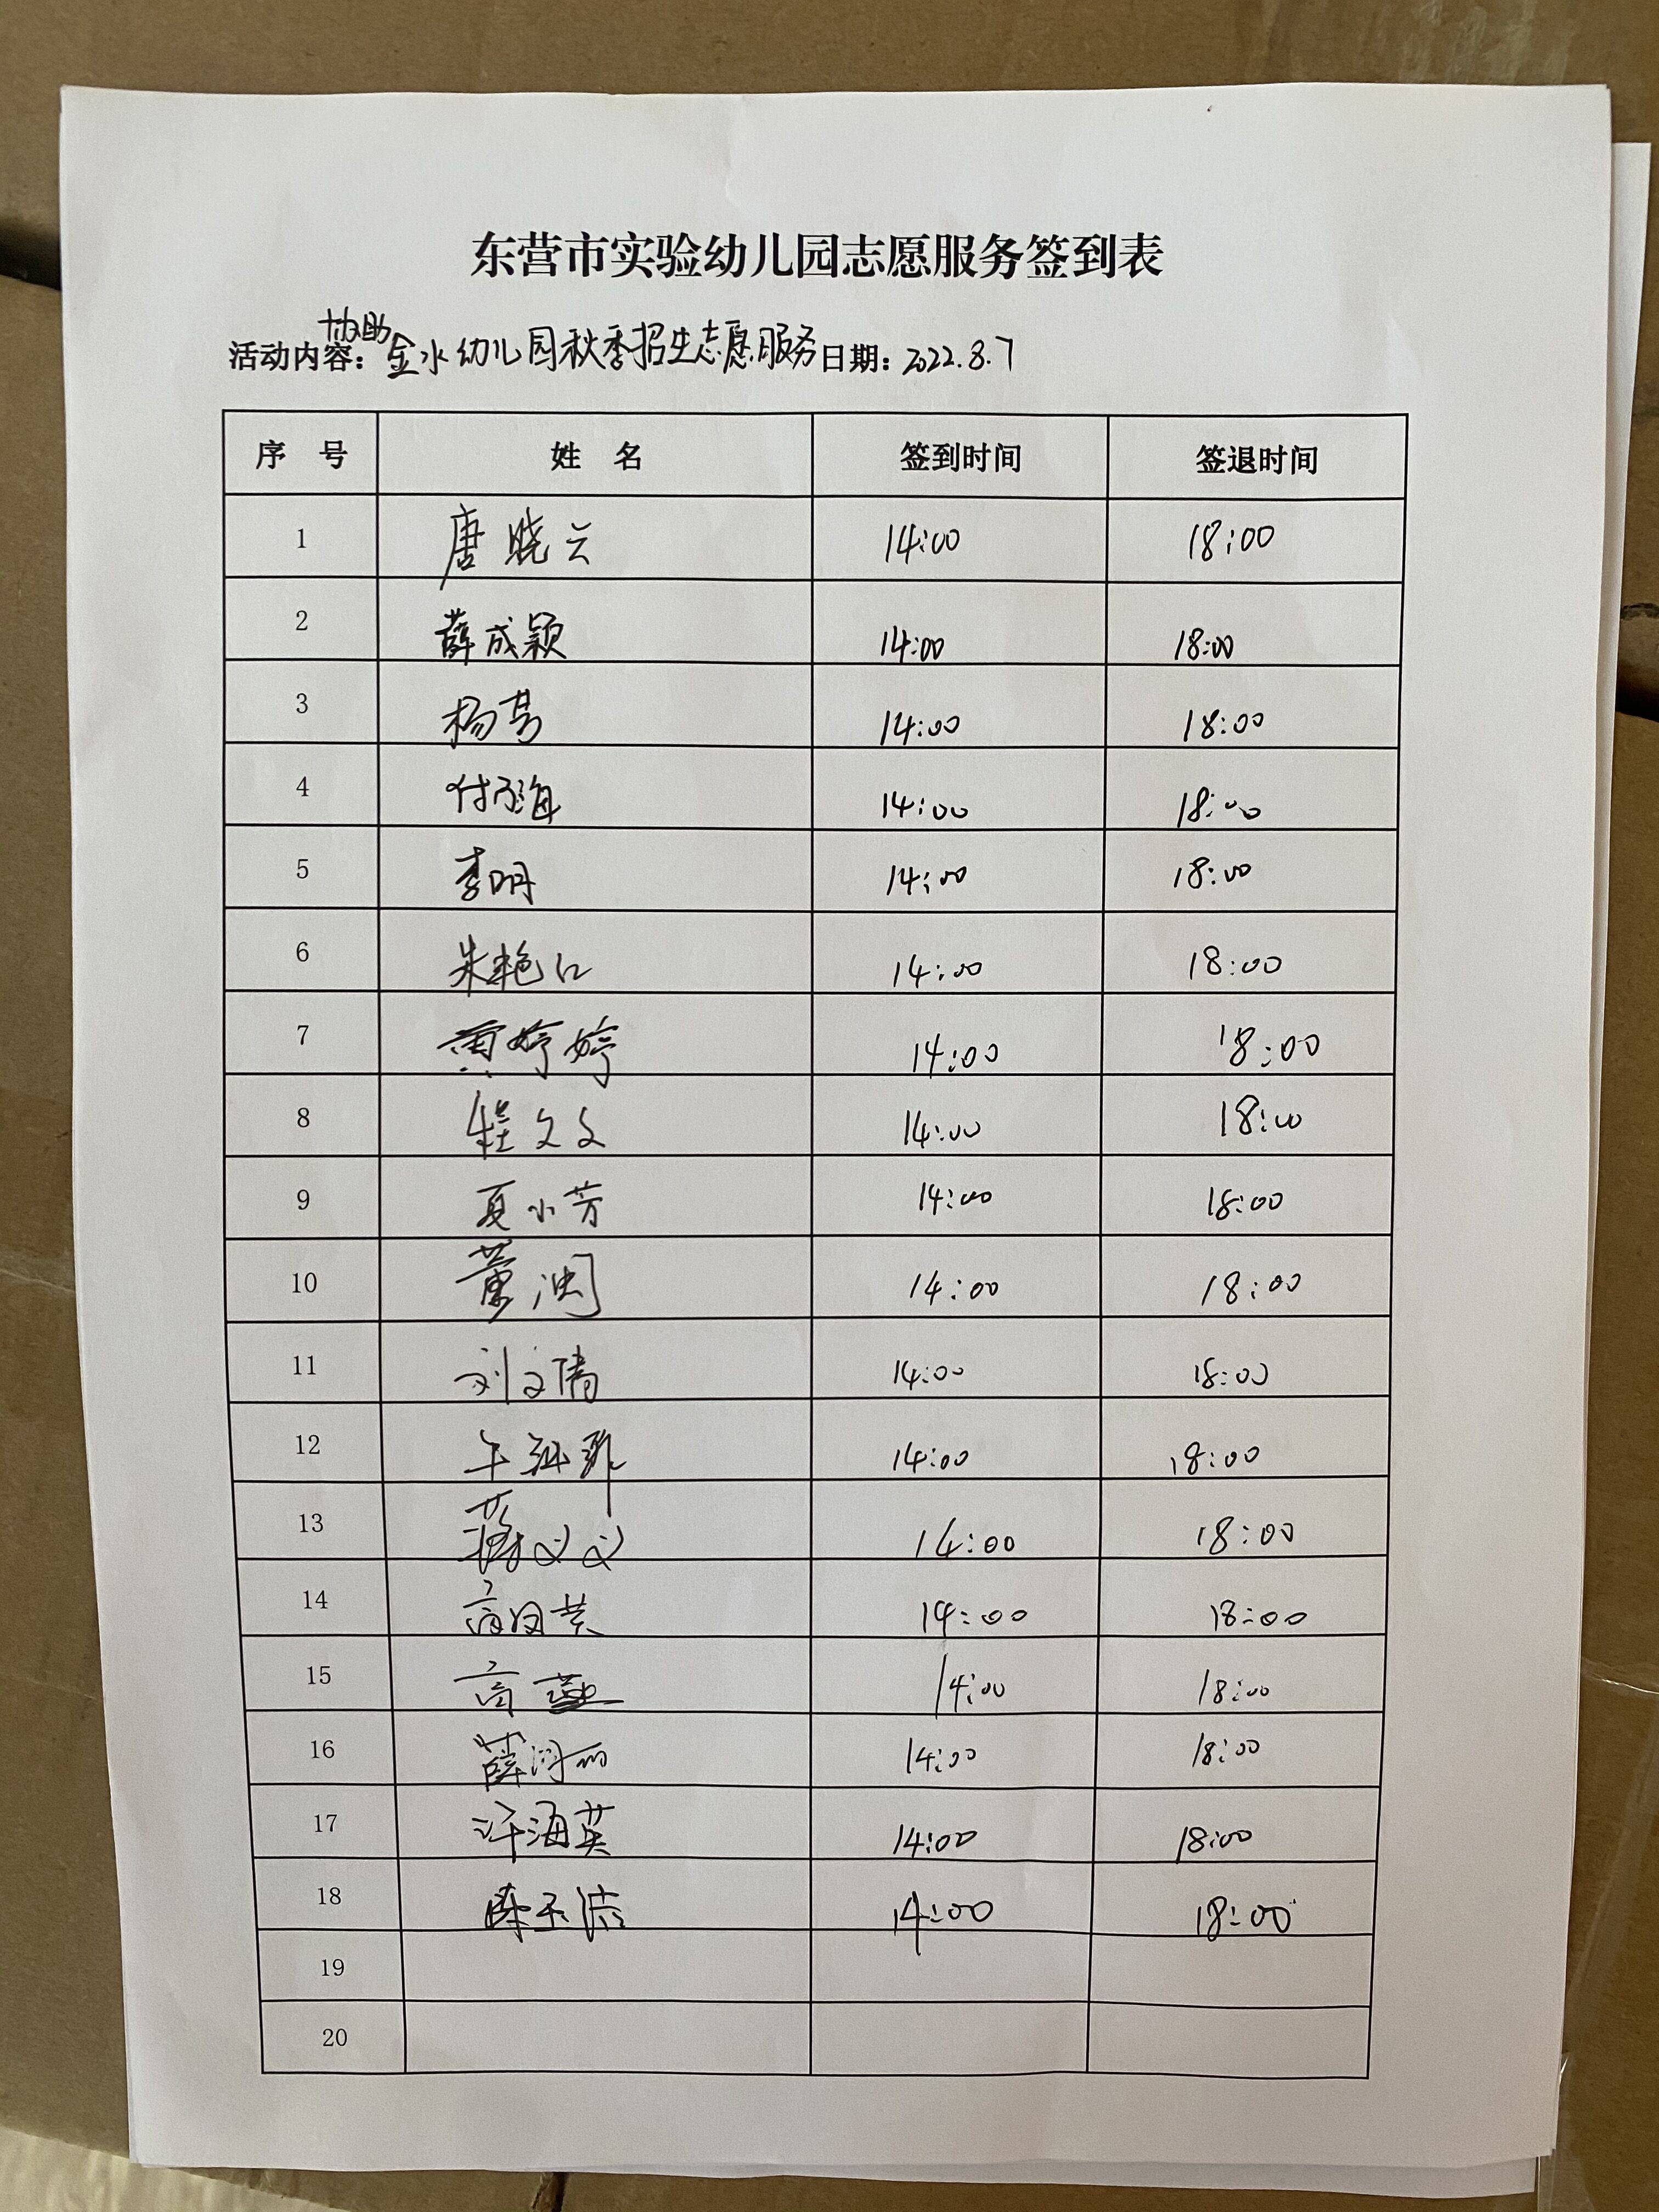 东营市实验幼儿园志愿服务签到表
活动内容：协助金水幼儿园秋季招生志愿服务 日期：2022.8.7
序 号 姓 名 签到时间 签退时间
1 唐晓云 14:00 18:00
2 薛成颖 14:00 18:00
3 杨 14:00 18:00
4 付 海 14:00 18:00
5 李明 14:00 18:00
6 朱艳红 14:00 18:00
7 黄婷婷 14:00 18:00
8 程文文 14:00 18:00
9 夏小芳 14:00 18:00
10 董润 14:00 18:00
11 刘文倩 14:00 18:00
12 14:00 18:00
13 蒋文文 14:00 18:00
14 高 14:00 18:00
15 高燕 14:00 18:00
16 薛 丽 14:00 18:00
17 许海英 14:00 18:00
18 陈玉洁 14:00 18:00
19
20